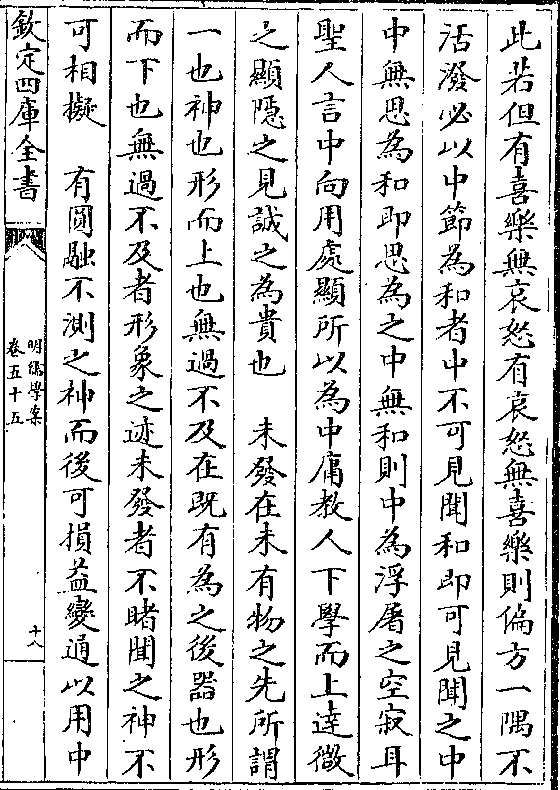 此若但有喜樂無哀怒有哀怒無喜樂則偏方一隅不
活潑必以中節為和者中不可見聞和即可見聞之中
中無思為和即思為之中無和則中為浮屠之空寂耳
聖人言中向用處顯所以為中庸教人下學而上達微
之顯隱之見誠之為貴也　未發在未有物之先所謂
一也神也形而上也無過不及在既有為之後器也形
而下也無過不及者形象之迹未發者不睹聞之神不
可相擬　有圓融不測之神而後可損益變通以用中
欽定四庫全書
明儒學案
卷五十五
十八